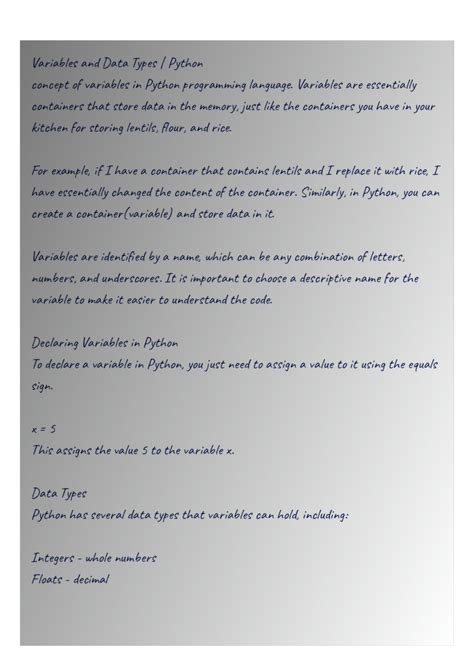 Variables and Data Types | Python
concept of variables in Python programming language. Variables are essentially
containers that store data in the memory, just like the containers you have in your
kitchen for storing lentils, flour, and rice.
For example, if I have a container that contains lentils and I replace it with rice, I
have essentially changed the content of the container. Similarly, in Python, you can
create a container(variable) and store data in it.
Variables are identified by a name, which can be any combination of letters,
numbers, and underscores. It is important to choose a descriptive name for the
variable to make it easier to understand the code.
Declaring Variables in Python
To declare a variable in Python, you just need to assign a value to it using the equals
sign.
x = 5
This assigns the value 5 to the variable x.
Data Types
Python has several data types that variables can hold, including:
Integers - whole numbers
Floats - decimal